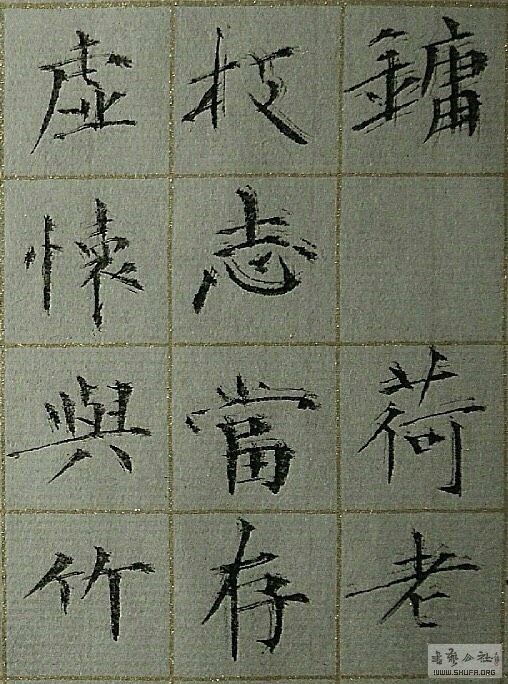 鏞 荷老
枝志當存
虛懷與竹
书艺公社
WWW.SHUFA.ORG